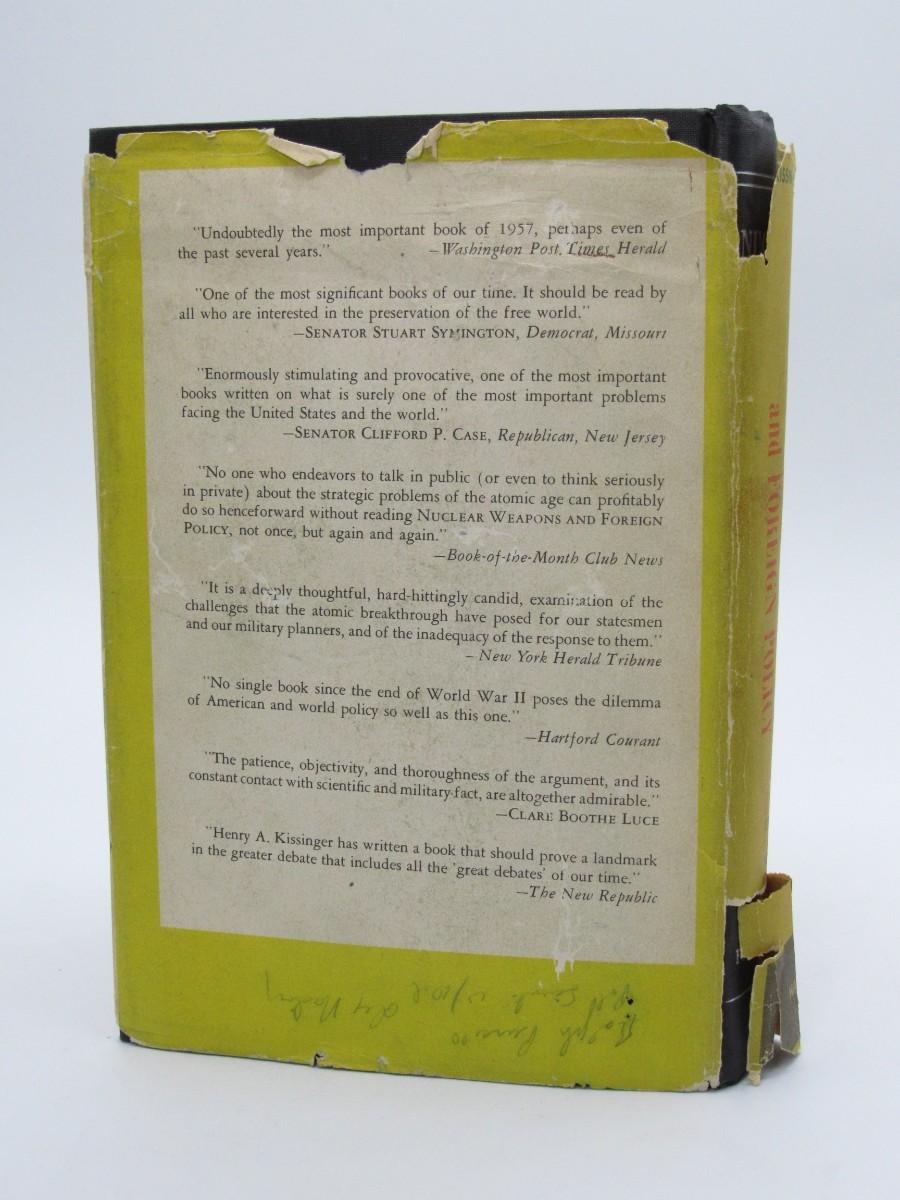 "Undoubtedly the most important book of 1957, perhaps even of
the past several years." —Washington Post, Times Herald
"One of the most significant books of our time. It should be read by
all who are interested in the preservation of the free world."
—SENATOR STUART SYMINGTON, Democrat, Missouri
"Enormously stimulating and provocative, one of the most important
books written on what is surely one of the most important problems
facing the United States and the world."
—SENATOR CLIFFORD P. CASE, Republican, New Jersey
"No one who endeavors to talk in public (or even to think seriously
in private) about the strategic problems of the atomic age can profitably
do so henceforward without reading NUCLEAR WEAPONS AND FOREIGN
POLICY, not once, but again and again."
—Book-of-the-Month Club News
"It is a deeply thoughtful, hard-hittingly candid, examination of the
challenges that the atomic breakthrough have posed for our statesmen
and our military planners, and of the inadequacy of the response to them."
– New York Herald Tribune
"No single book since the end of World War II poses the dilemma
of American and world policy so well as this one."
—Hartford Courant
"The patience, objectivity, and thoroughness of the argument, and its
constant contact with scientific and military fact, are altogether admirable."
—CLARE BOOTHE LUCE
"Henry A. Kissinger has written a book that should prove a landmark
in the greater debate that includes all the 'great debates' of our time."
—The New Republic
and FOREIGN POLICY
Ralph